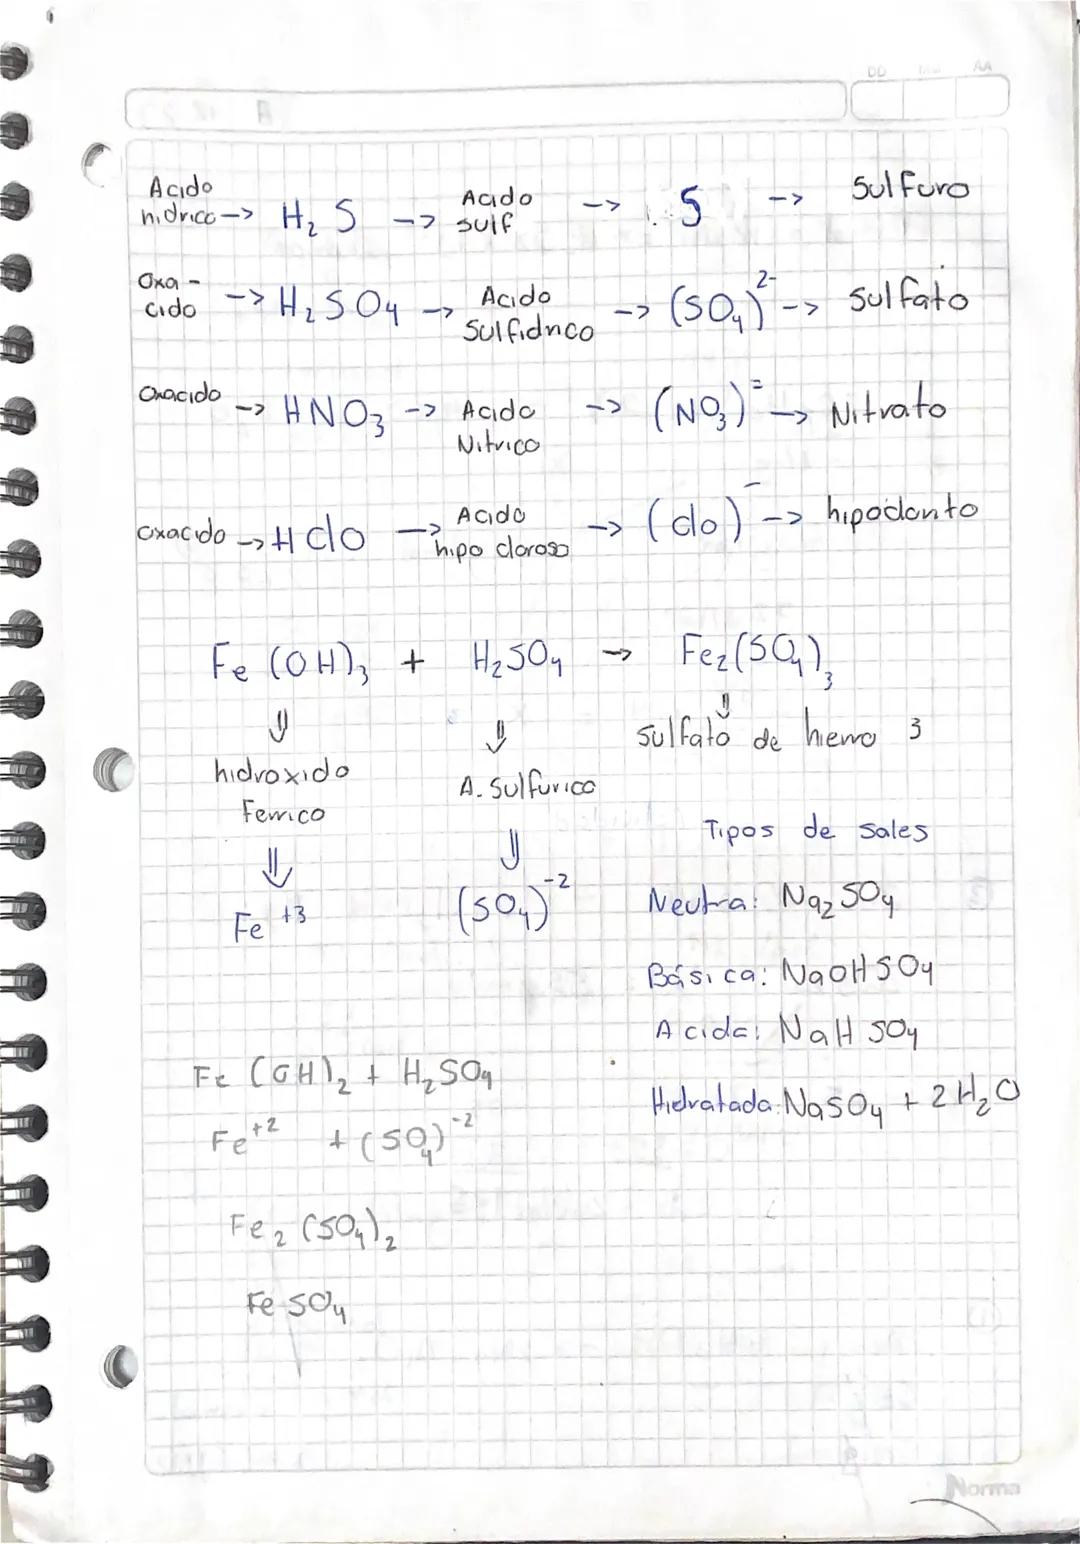 DD AA
Acido
hidrico -> H₂S -> Acido sulf -> S -> Sulfuro
Oxa-
cido -> H₂SO₄ -> Acido Sulfidrico -> (SO₄)²⁻ -> Sulfato
Oxacido -> HNO₃ -> Acido Nitrico -> (NO₃)⁼ -> Nitrato
oxacido -> HClO -> Acido hipo cloroso -> (clo)⁻ -> hipoclorito
Fe (OH)₃ + H₂SO₄ -> Fe₂(SO₄)₃
⇓ ⇓ ⇓
sulfato de hierro 3
hidroxido
Ferrico
A. Sulfurico
⇓ ⇓
Fe⁺³ (SO₄)⁻²
Tipos de sales
Neutra: Na₂SO₄
Básica: NaOHSO₄
Acida: NaHSO₄
Hidratada: NaSO₄ + 2H₂O
Fe (OH)₂ + H₂SO₄
Fe⁺² + (SO₄)⁻²
Fe₂(SO₄)₂
FeSO₄
Norma